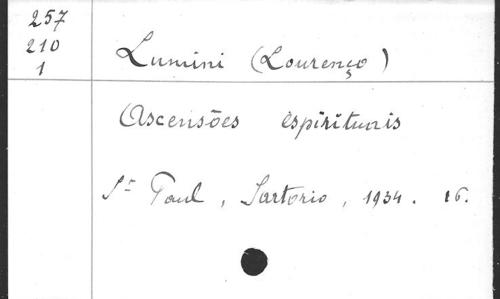 257
210
1
Lumini (Lourenço)
Ascensões espirituais
St Paul, Sartorio, 1934. 16.